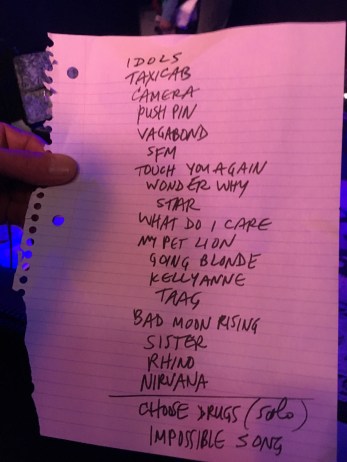 IDOLS
TAXICAB
CAMERA
PUSH PIN
VAGABOND
SFM
TOUCH YOU AGAIN
WONDER WHY
STAR
WHAT DO I CARE
MY PET LION
GOING BLONDE
KELLYANNE
TAAG
BAD MOON RISING
SISTER
RHINO
NIRVANA
CHOOSE DRUGS (SOLO)
IMPOSSIBLE SONG